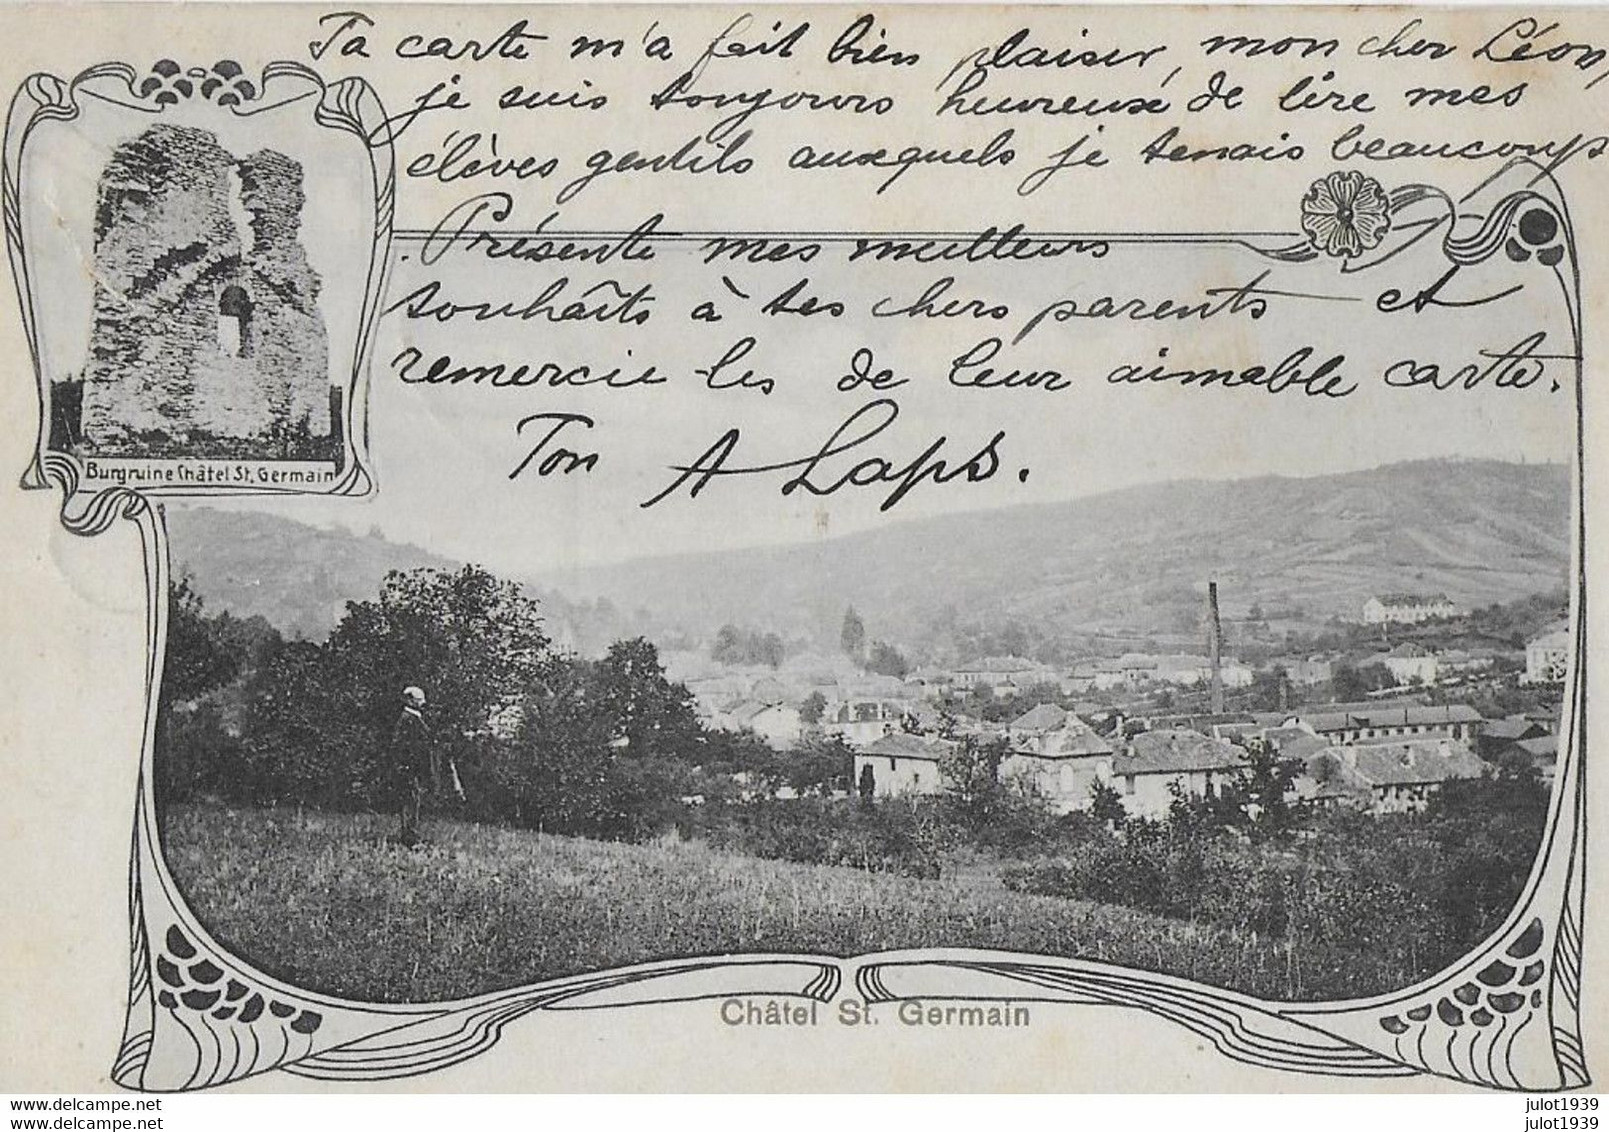 Ta carte m'a fait bien plaisir, mon cher Léon,
je suis toujours heureux de lire mes
élèves gentils auxquels je tenais beaucoup
. Présente mes meilleurs
souhaits à tes chers parents et
remercie-les de leur aimable carte.
Ton A Laps.
Burgruine Châtel St. Germain
Châtel St. Germain
www.delcampe.net
www.delcampe.net
julot1939
julot1939